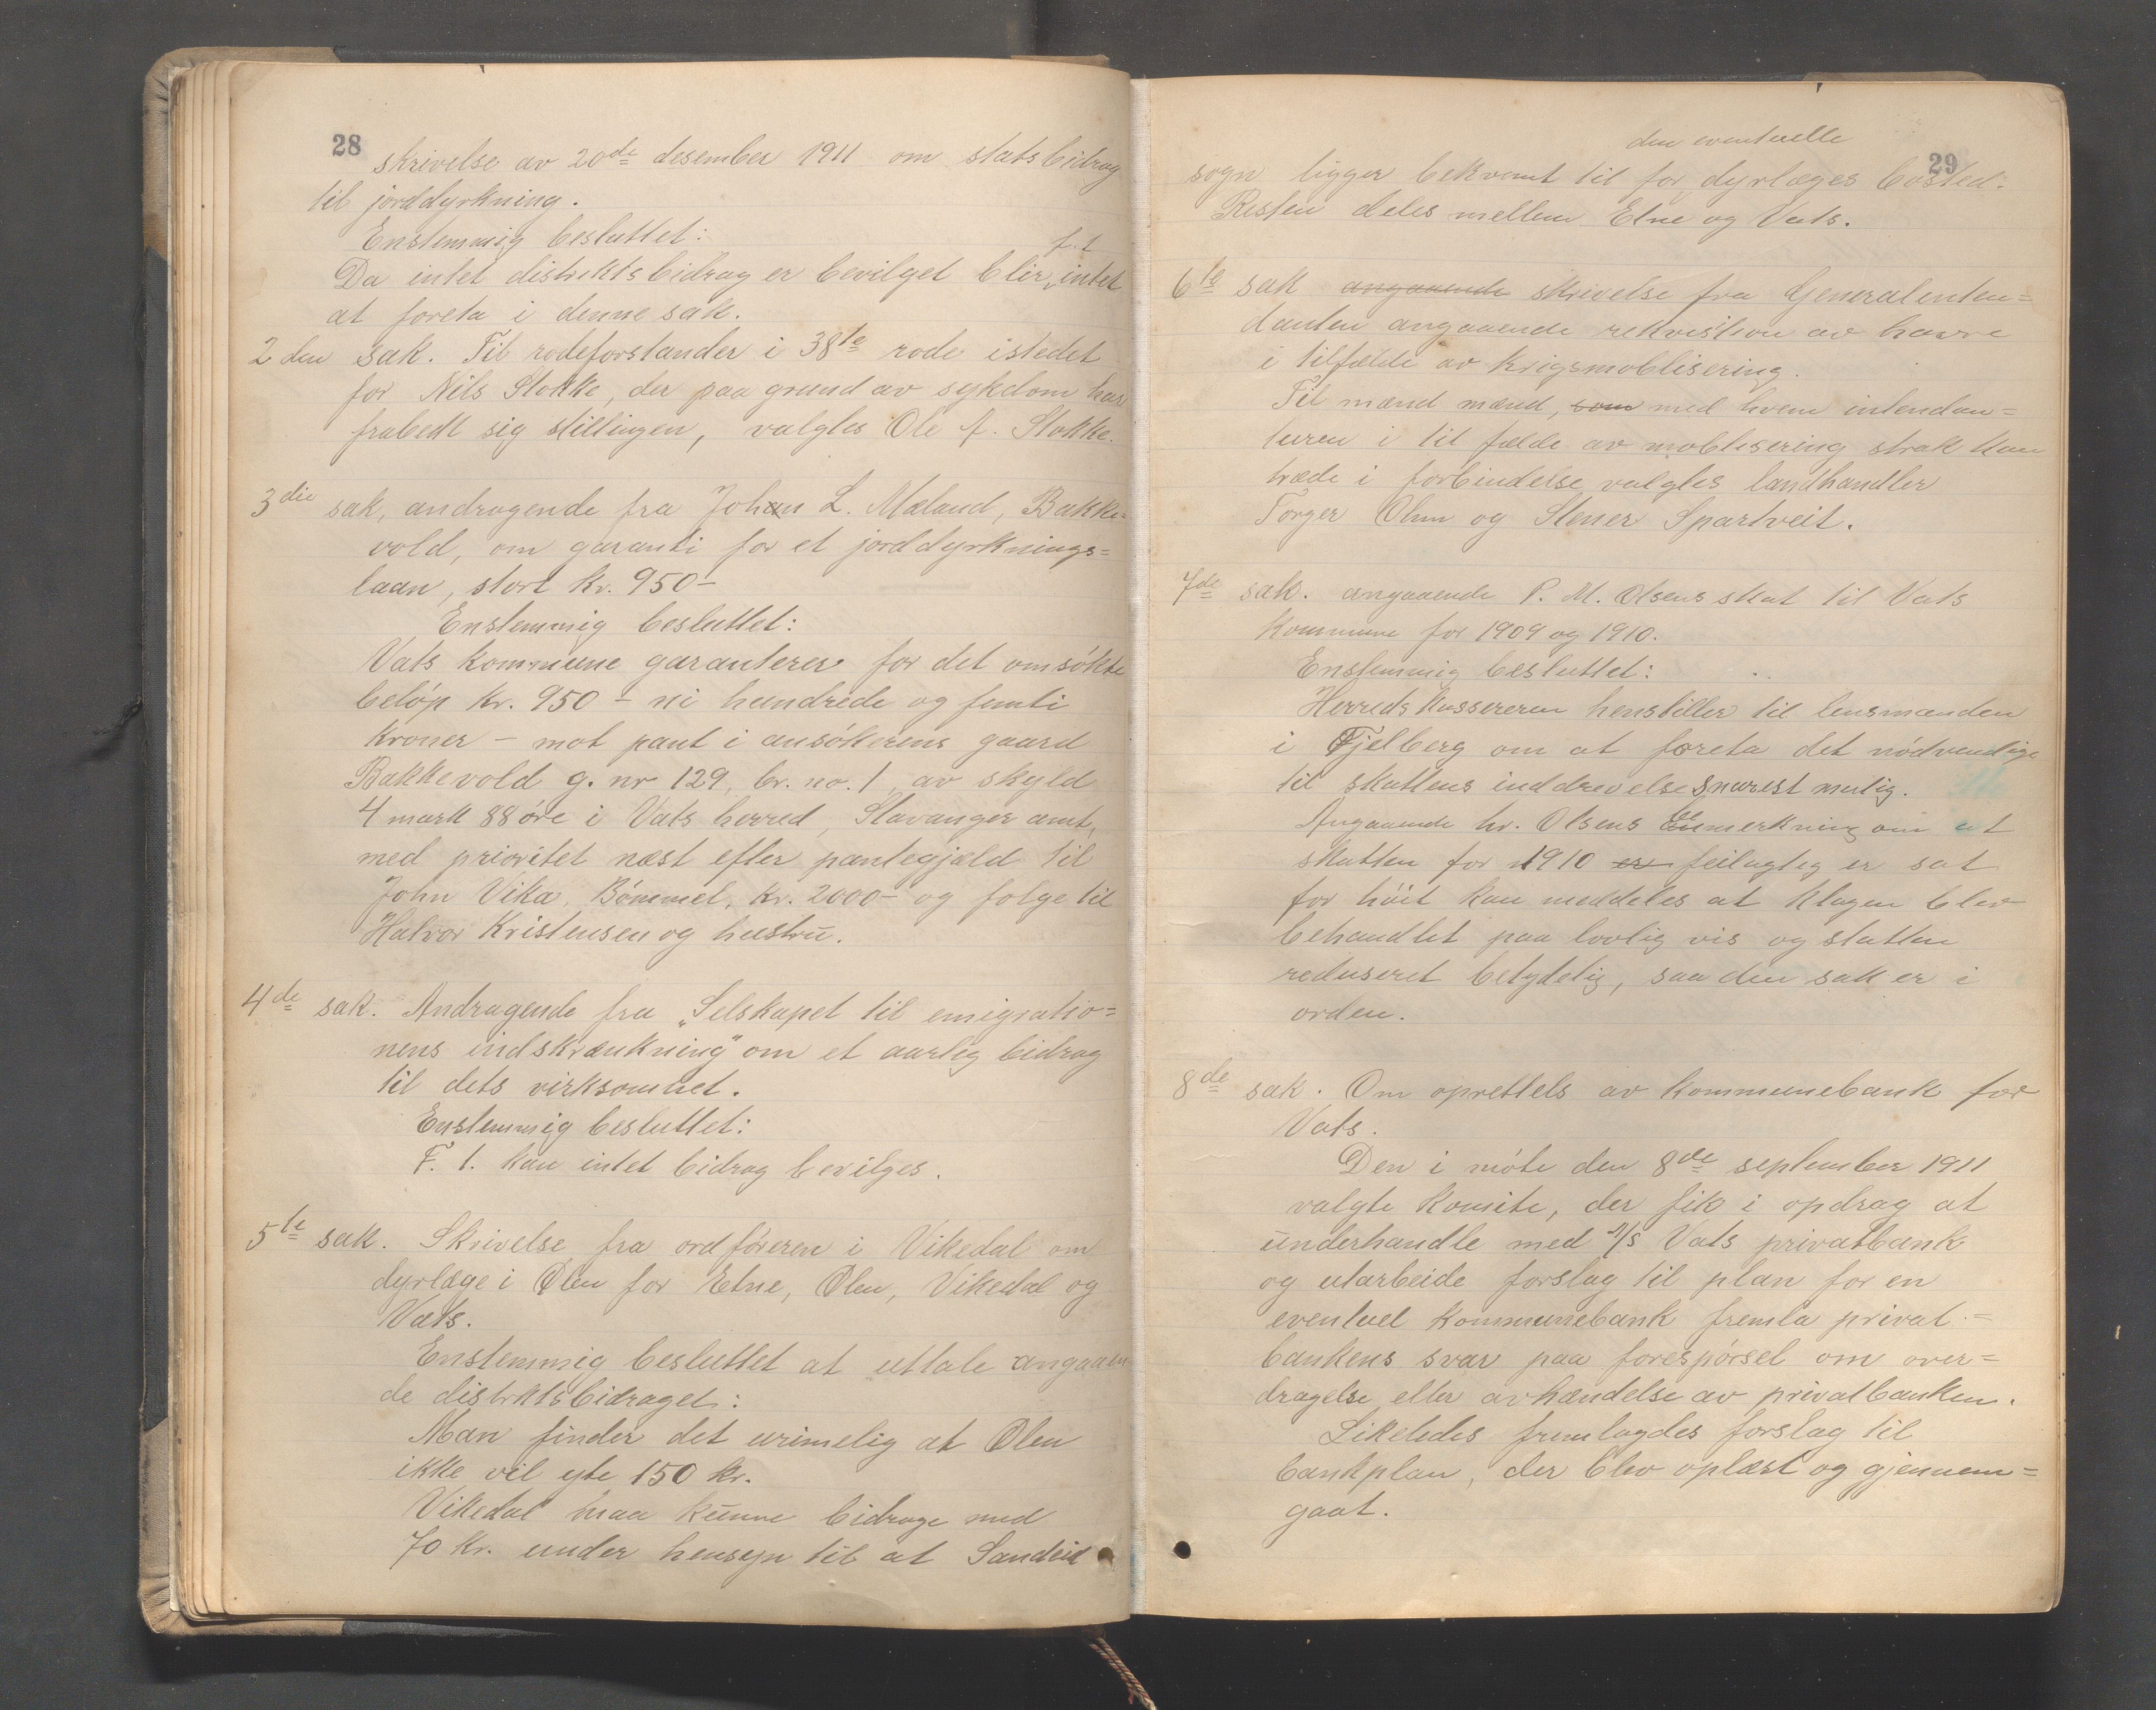 28
skrivelse av 20de desember 1911 om statsbidrag
til jorddyrkning.
Enstemmig besluttet:
f. t.
Da intet distriktsbidrag er bevilget blir intet
at foreta i denne sak.
2den sak. Til rodeforstander i 38te rode istedet
for Nils Stokke, der paa grund av sykdom har
frabedt sig stillingen, valgtes Ole A. Stokke.
3die sak, andragende fra Johan L. Mæland, Bakke=
vold, om garanti for et jorddyrknings=
laan, stort kr. 950-
Enstemmig besluttet:
Vats kommune garanterer for det omsökte
belöp kr. 950 - ni hundrede og femti
kroner - mot pant i ansökerens gaard
Bakkevold g. nr 129, br. no. 1 av skyld
4 mark 88 öre i Vats herred, Stavanger amt,
med prioritet næst efter pantegjæld til
John Vika, Bömmel, kr. 2000- og folge til
Halvor Kristensen og hustru.
4de sak. Andragende fra "Selskapet til emigratio=
nens indskrænkning" om et aarlig bidrag
til dets virksomhet.
Enstemmig besluttet:
F. t. kan intet bidrag bevilges.
5te sak. Skrivelse fra ordföreren i Vikedal om
dyrlæge i Ølen for Etne, Ølen, Vikedal og
Vats.
Enstemmig besluttet at uttale angaaen
de distriktsbidraget:
Man finder det urimelig at Ølen
ikke vil yte 150 kr.
Vikedal maa kunne bidrage med
70 kr. under hensyn til at Sandeid
29
den eventuelle
sogn ligger bekvemt til for dyrlæges bosted.
Resten deles mellem Etne og Vats.
6te sak angaaende skrivelse fra Generalinten=
danten angaaende rekvisition av havre
i tilfælde av krigsmoblisering.
Til mænd mænd, som med hvem intendan=
turen i til fælde av moblisering strak kan
træde i forbindelse valgtes landhandler
Torger Ølen og Stener Spartveit.
7de sak. angaaende P. M. Olsens skat til Vats
kommune for 1909 og 1910.
Enstemmig besluttet:
Herredskassereren henstiller til lensmanden
i Fjelberg om at foreta det nödvendige
til skattens inddrevelse snarest mulig.
Angaaende hr. Olsens bemerkning om at
skatten for 1910 er feilagtig er sat
for höit kan meddeles at klagen blev
behandlet paa lovlig vis og skatten
reduseret betydelig, saa den sak er i
orden.
8de sak. Om oprettels av kommunebank for
Vats.
Den i möte den 8de september 1911
valgte komite, der fik i opdrag at
underhandle med A/S Vats privatbank
og utarbeide forslag til plan for en
eventuel kommunebank fremla privat=
bankens svar paa forespörsel om over=
dragelse eller avhændelse av privatbanken.
Likeledes fremlagdes forslag til
bankplan, der blev oplæst og gjennem=
gaat.